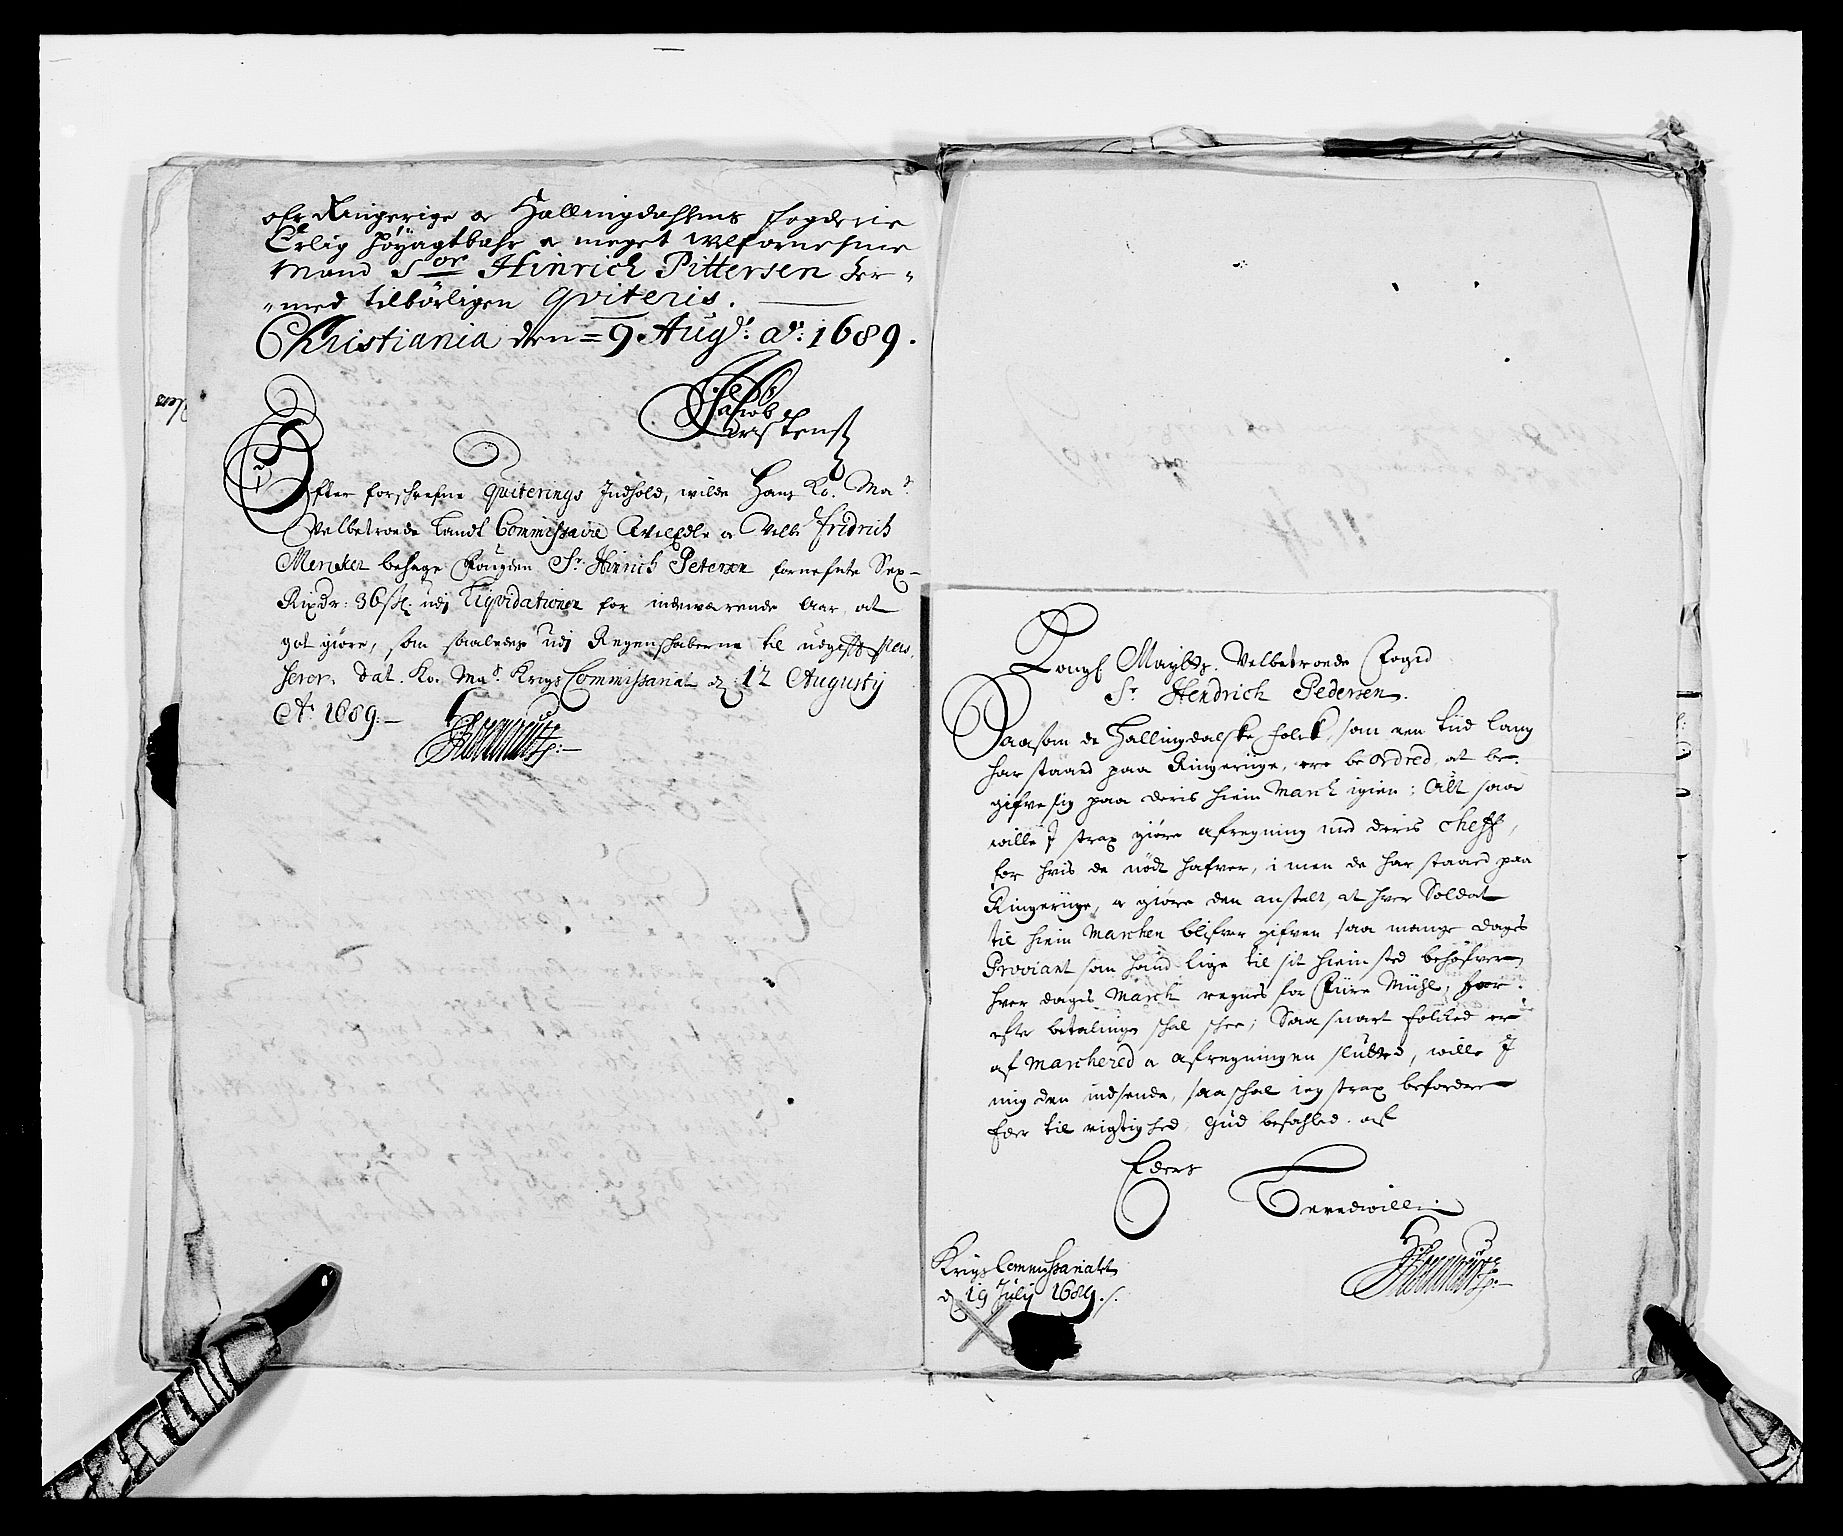 ofr Ringerige og Hallingdahlens fogderie
Ærlig höyagtbahr og meget velfornehme
Mand Sor Hinrich Pittersen her-
-med tilbörligen qviteris.
Christiania den = 9 Aug: Ao: 1689.
Jacob
Christens
Efter forschrefne Quiterings Indhold, wilde Hans Ko. Mas
Velbetroede Landt Commissaire Fridrich
Mercker behage Fougden Sr. Hinrich Petersen fornefnte Sex
Rixdr: 36 sk. udj Liqvidationen for indeværende Aar at
got giöre, som saaledes udj Regenskaberne til udgift pas,
serer. Dat. Ko. Mas. Krigs Commissariat d: 12 Augustij
Ao 1689.
Kongl Maytts. Velbetroede Fogid
Sr Hendrich Pedersen.
Saasom de Hallingdalske folck, som een tiid lang
har staaed paa Ringeriige, ere beordred, at be-
gifve sig paa deris hiem March igien; Alt saa
wille J strax giöre afregning med deris Cheff,
for hvis de nödt hafver, i men de har staaed paa
Ringeriige, og giöre den anstalt, at hver Soldat
til hiem Marchen blifver gifven saa mange dages
Proviant som hand lige til sit hiem sted behöfver,
hver dages March regnes for Fiire Miihl, hvor
efter betalingen schal schee; Saa snart folcked er
af Marchered og afregningen slutted, wille J
mig den indsende, saa schal ieg strax befordre
Eder til rigtighed, Gud befahled. af
Eders
Tienstwillig
Krigs Commissariatet
d. 19 July 1689.